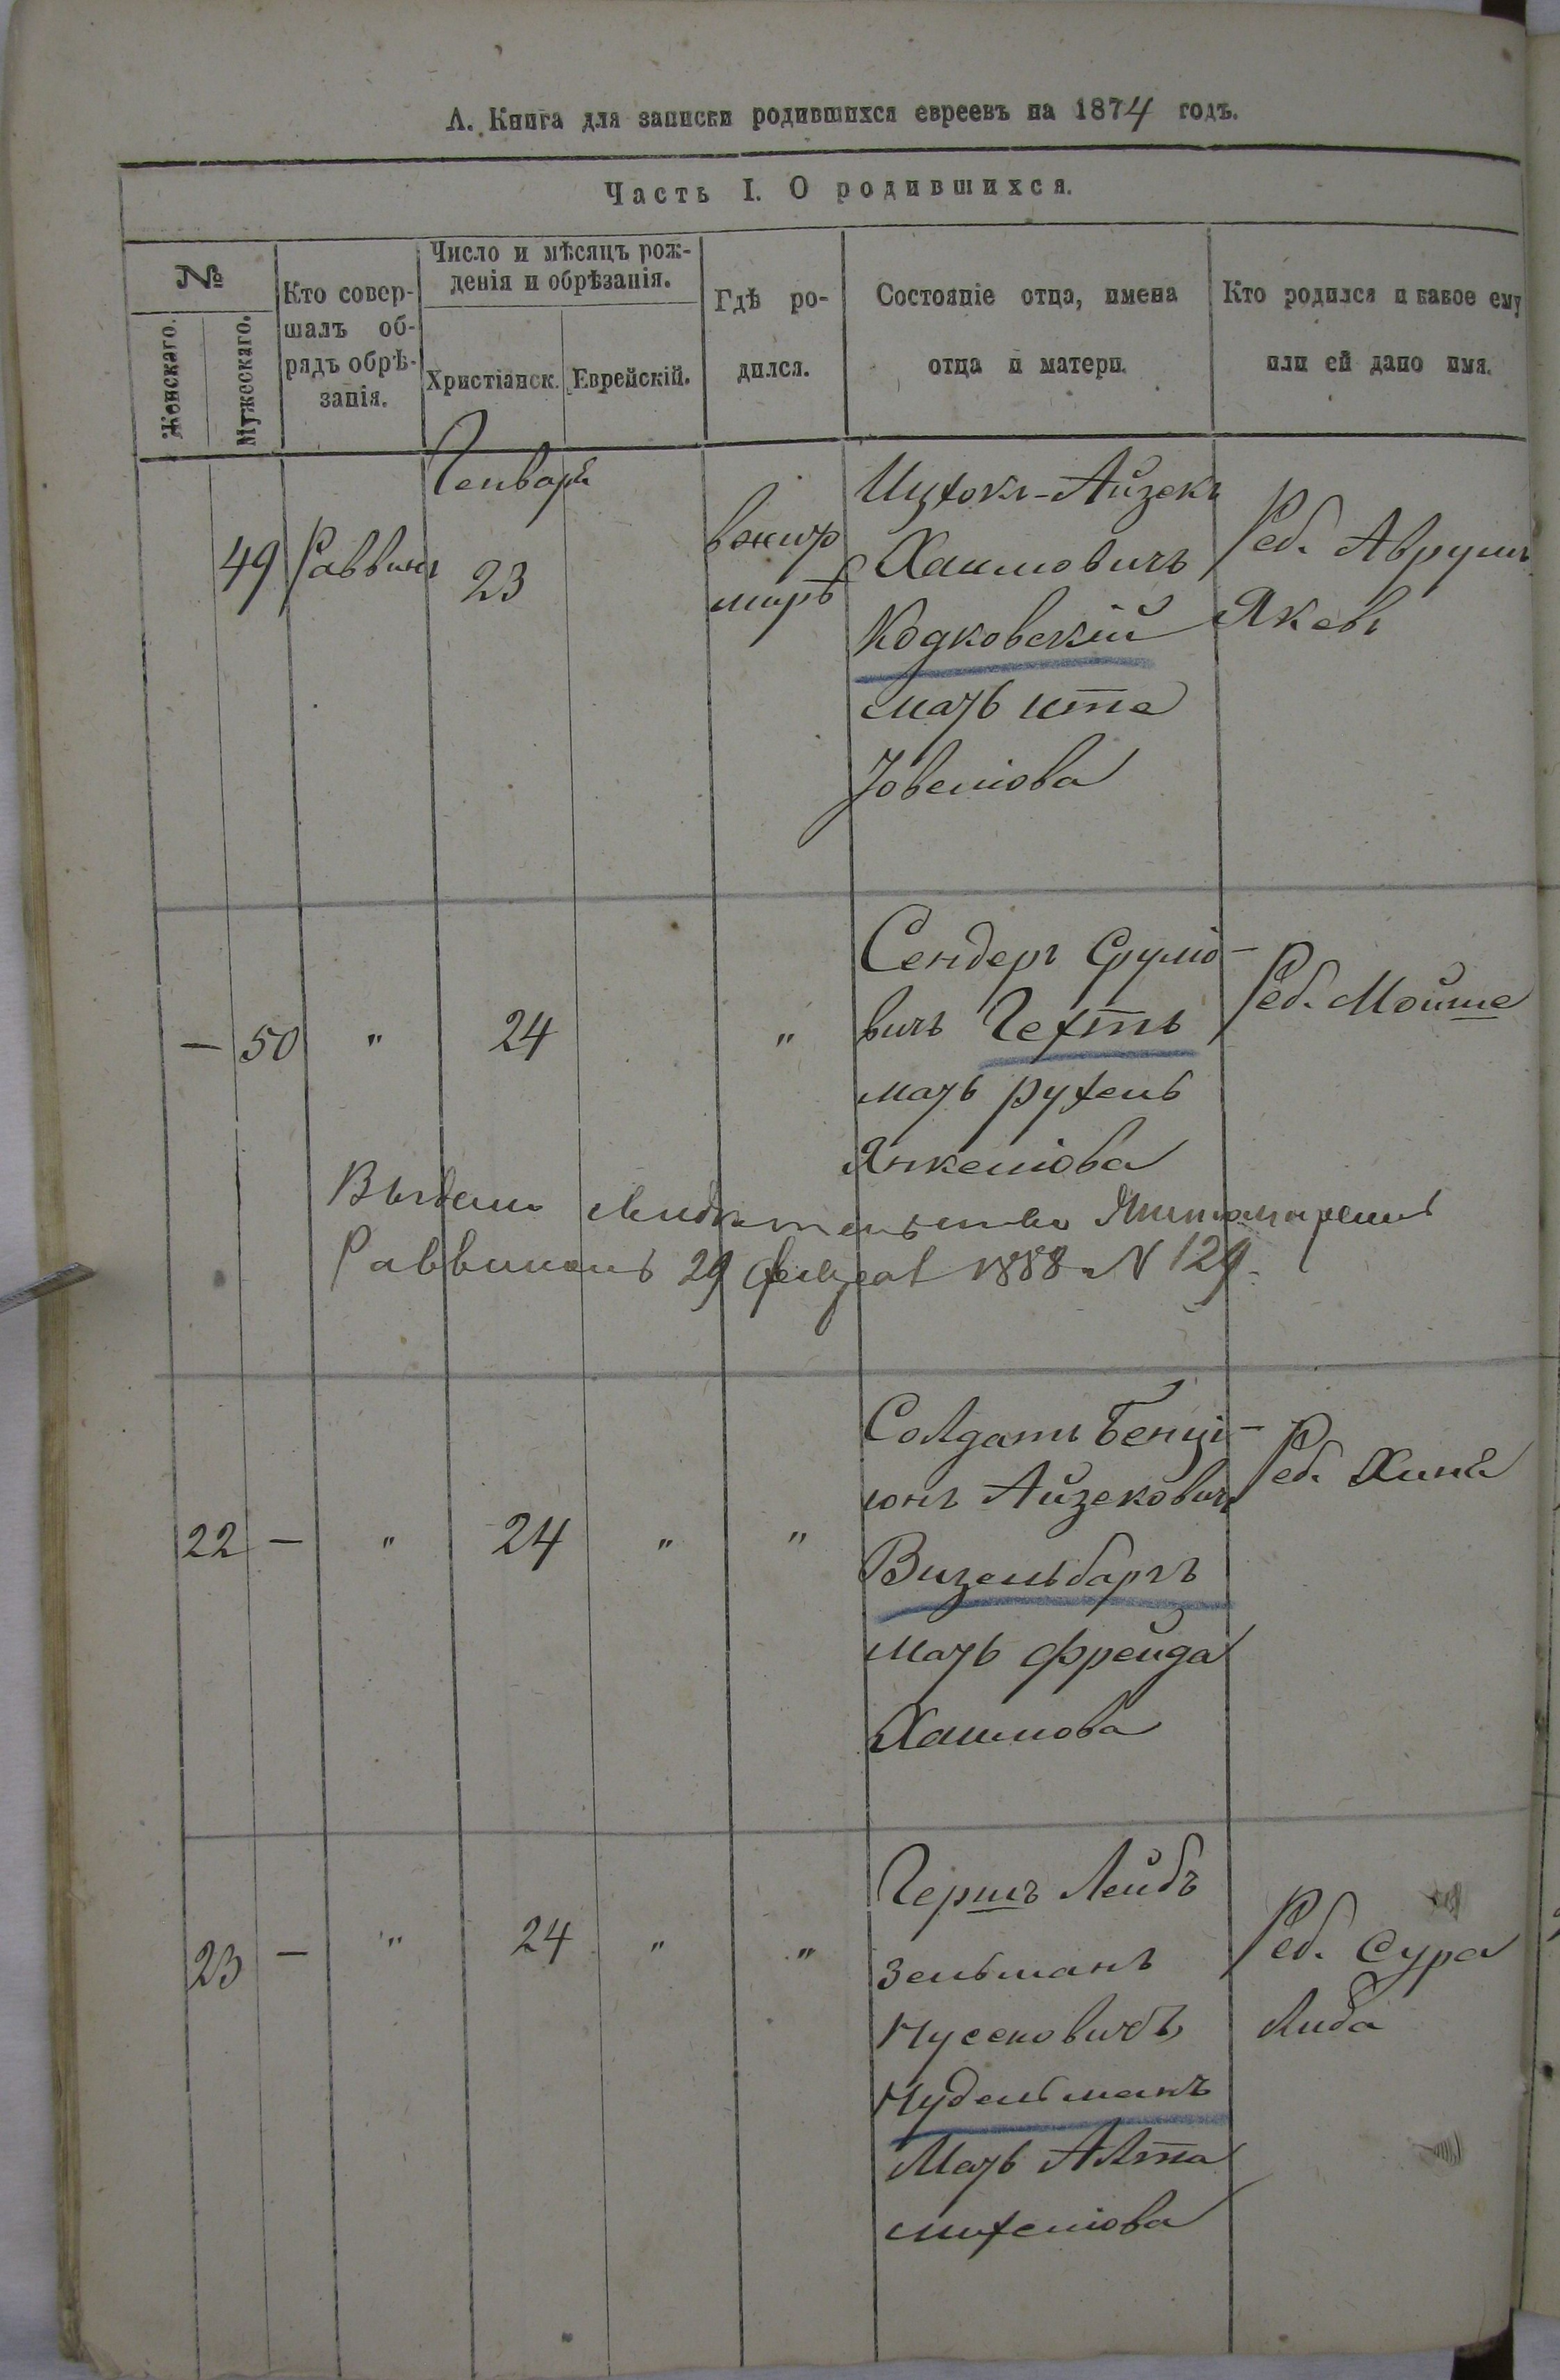 А. Книга для записки родившихся евреевъ на 1874 годъ.
Часть I. О родившихся.
№
Женскаго.
Мужескаго.
Кто совер-
шалъ об-
рядъ обрѣ-
занія.
Число и мѣсяцъ рож-
денія и обрѣзанія.
Христіанск.
Еврейскій.
Гдѣ ро-
дился.
Состояніе отца, имена
отца и матери.
Кто родился и какое ему
или ей дано имя.
49
Раввинъ
Генваря
23
Ицхокъ-Айзекъ
Хаимовичъ
Кодковскій
мать
Реб. Аврумъ
Якевъ
— 50 " 24 "
Сендеръ Сруліо-
вичъ Гехтъ
мать рухель
Янкеліова
Реб. Мойше
Выдано свидетельство Житомирскимъ
Раввиномъ 29 1888 N 129.
22 — " 24 " "
Солдатъ Бенці-
юнъ Айзековичъ
Визельбаргъ
мать Фрейда
Хаимова
Реб. Хиня
23 — " 24 " "
Гершъ Лейбъ
Зельманъ
Нусеновичъ
Нудельманъ
Мать Алта
михеліова
Реб. Сура
Либа